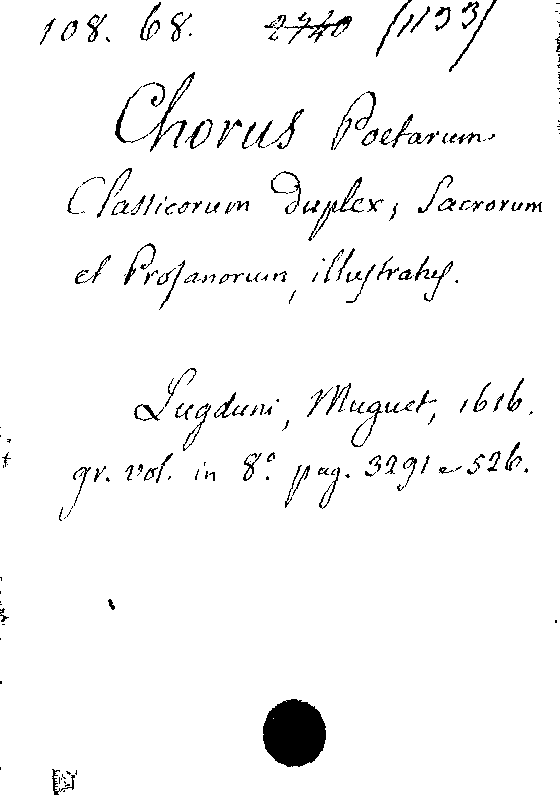 108. 68. 2740 (1193)
Chorus Poetarum
Classicorum duplex, Sacrorum
et Profanorum, illustratus.
Lugduni, Muguet, 1616.
gr. vol. in 8° pag. 3291 e 526.